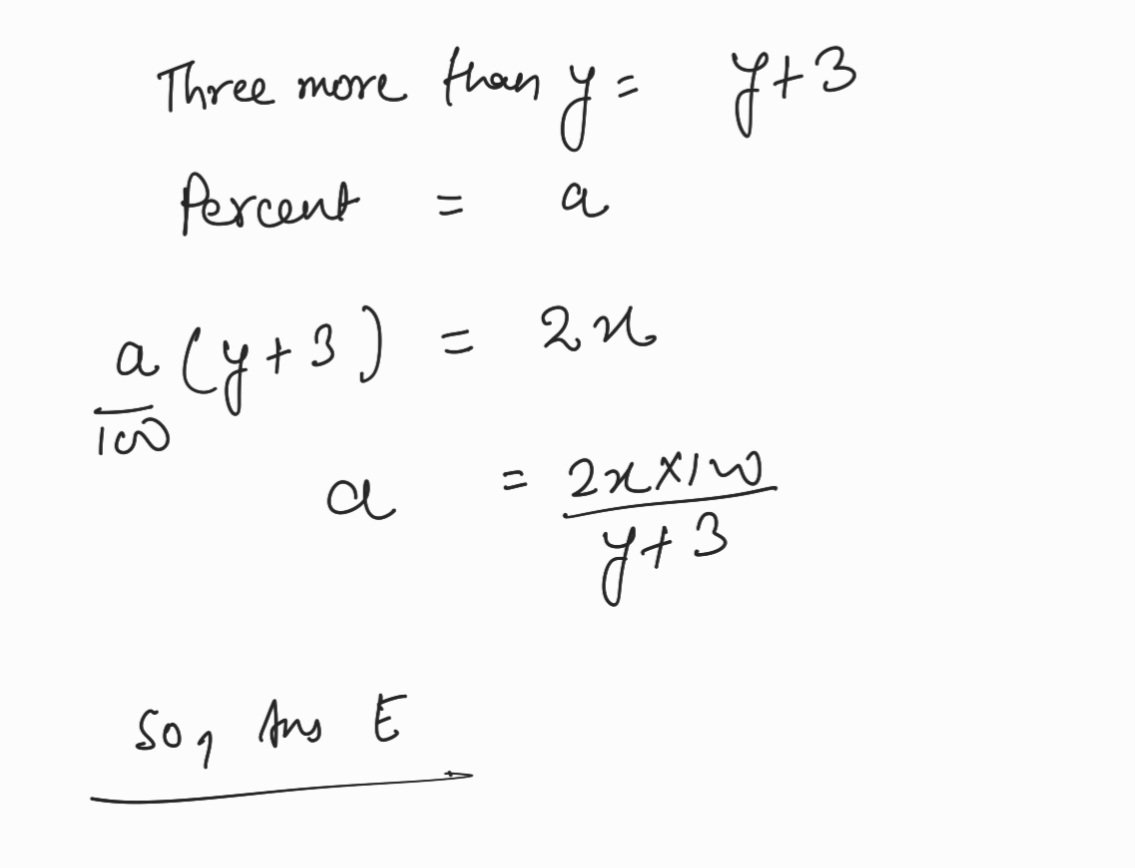 Three more than y = y+3
Percent = a
a/100 (y+3) = 2x
a = 2x×100/y+3
So, Ans E